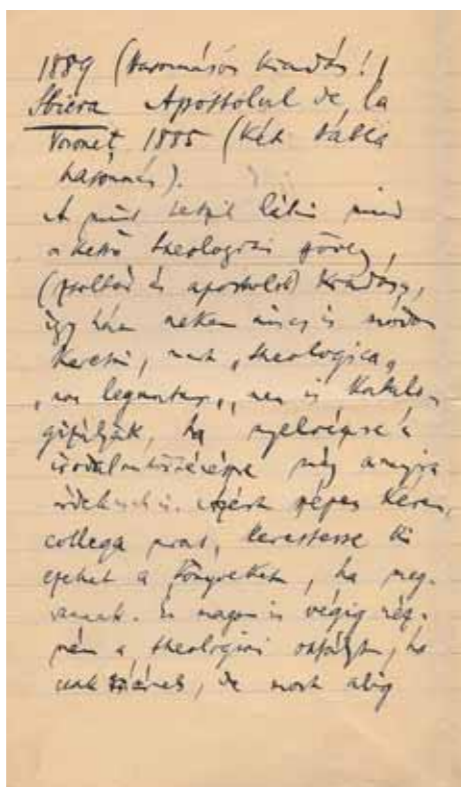 1889 (Hasonmásos kiadás!)
Sbiera Apostolul de la
Voroneț 1885 (Két tábla
hasonmás).
A mint tetszik látni mind
a kettő theologiai szöveg,
(psoltőr és apostolos) kiadása,
így hán nekem nincs is módom
keresni, mert „theologica„
„non leguntur„, nem is katalo-
gizáljuk, ha nyelvészre s
irodalomtörténészre még annyira
érdekes is. Azért szépen kérem,
collega urat, kerestesse ki
ezeket a könyveket, ha meg-
vannak. Én magam is végig néz-
ném a theologiai osztályt, ha
csak ráérnék, de most alig